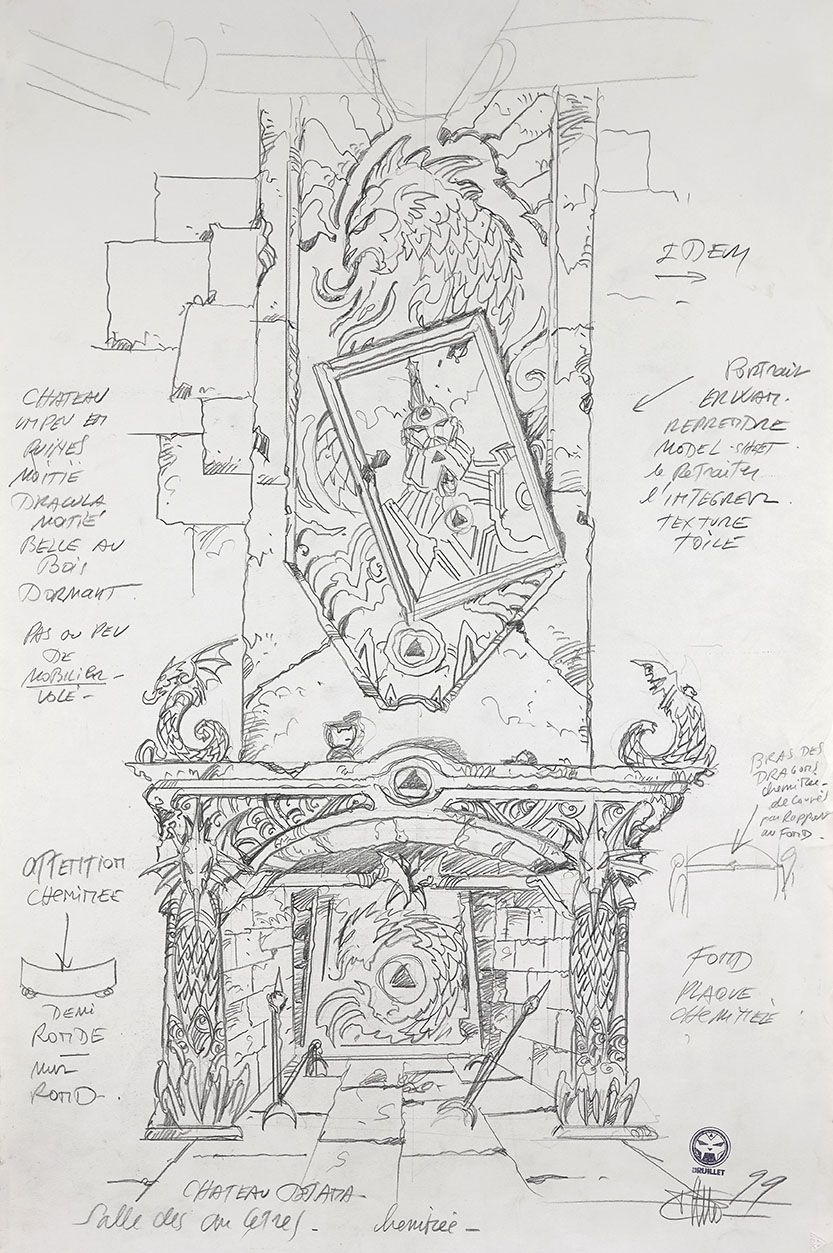 IDEM
CHATEAU
UN PEU EN
RUINES
MOITIÉ
DRACULA
MOITIÉ
BELLE AU
BOIS
DORMANT.
PAS OU PEU
DE
MOBILIER -
VOLÉ -
PORTRAIT
ERWAN.
REPRENDRE
MODEL-SHEET.
le Retraiter
l'INTEGRER.
TEXTURE
TOILE
BRAS DES
DRAGONS
cheminée -
par Rapport
au FOND.
ATTENTION
CHEMINEE
DEMI
RONDE
MUR
ROND -
FOND
PLAQUE
CHEMINEE
DRUILLET
99
CHATEAU
Salle des ancêtres - cheminée -